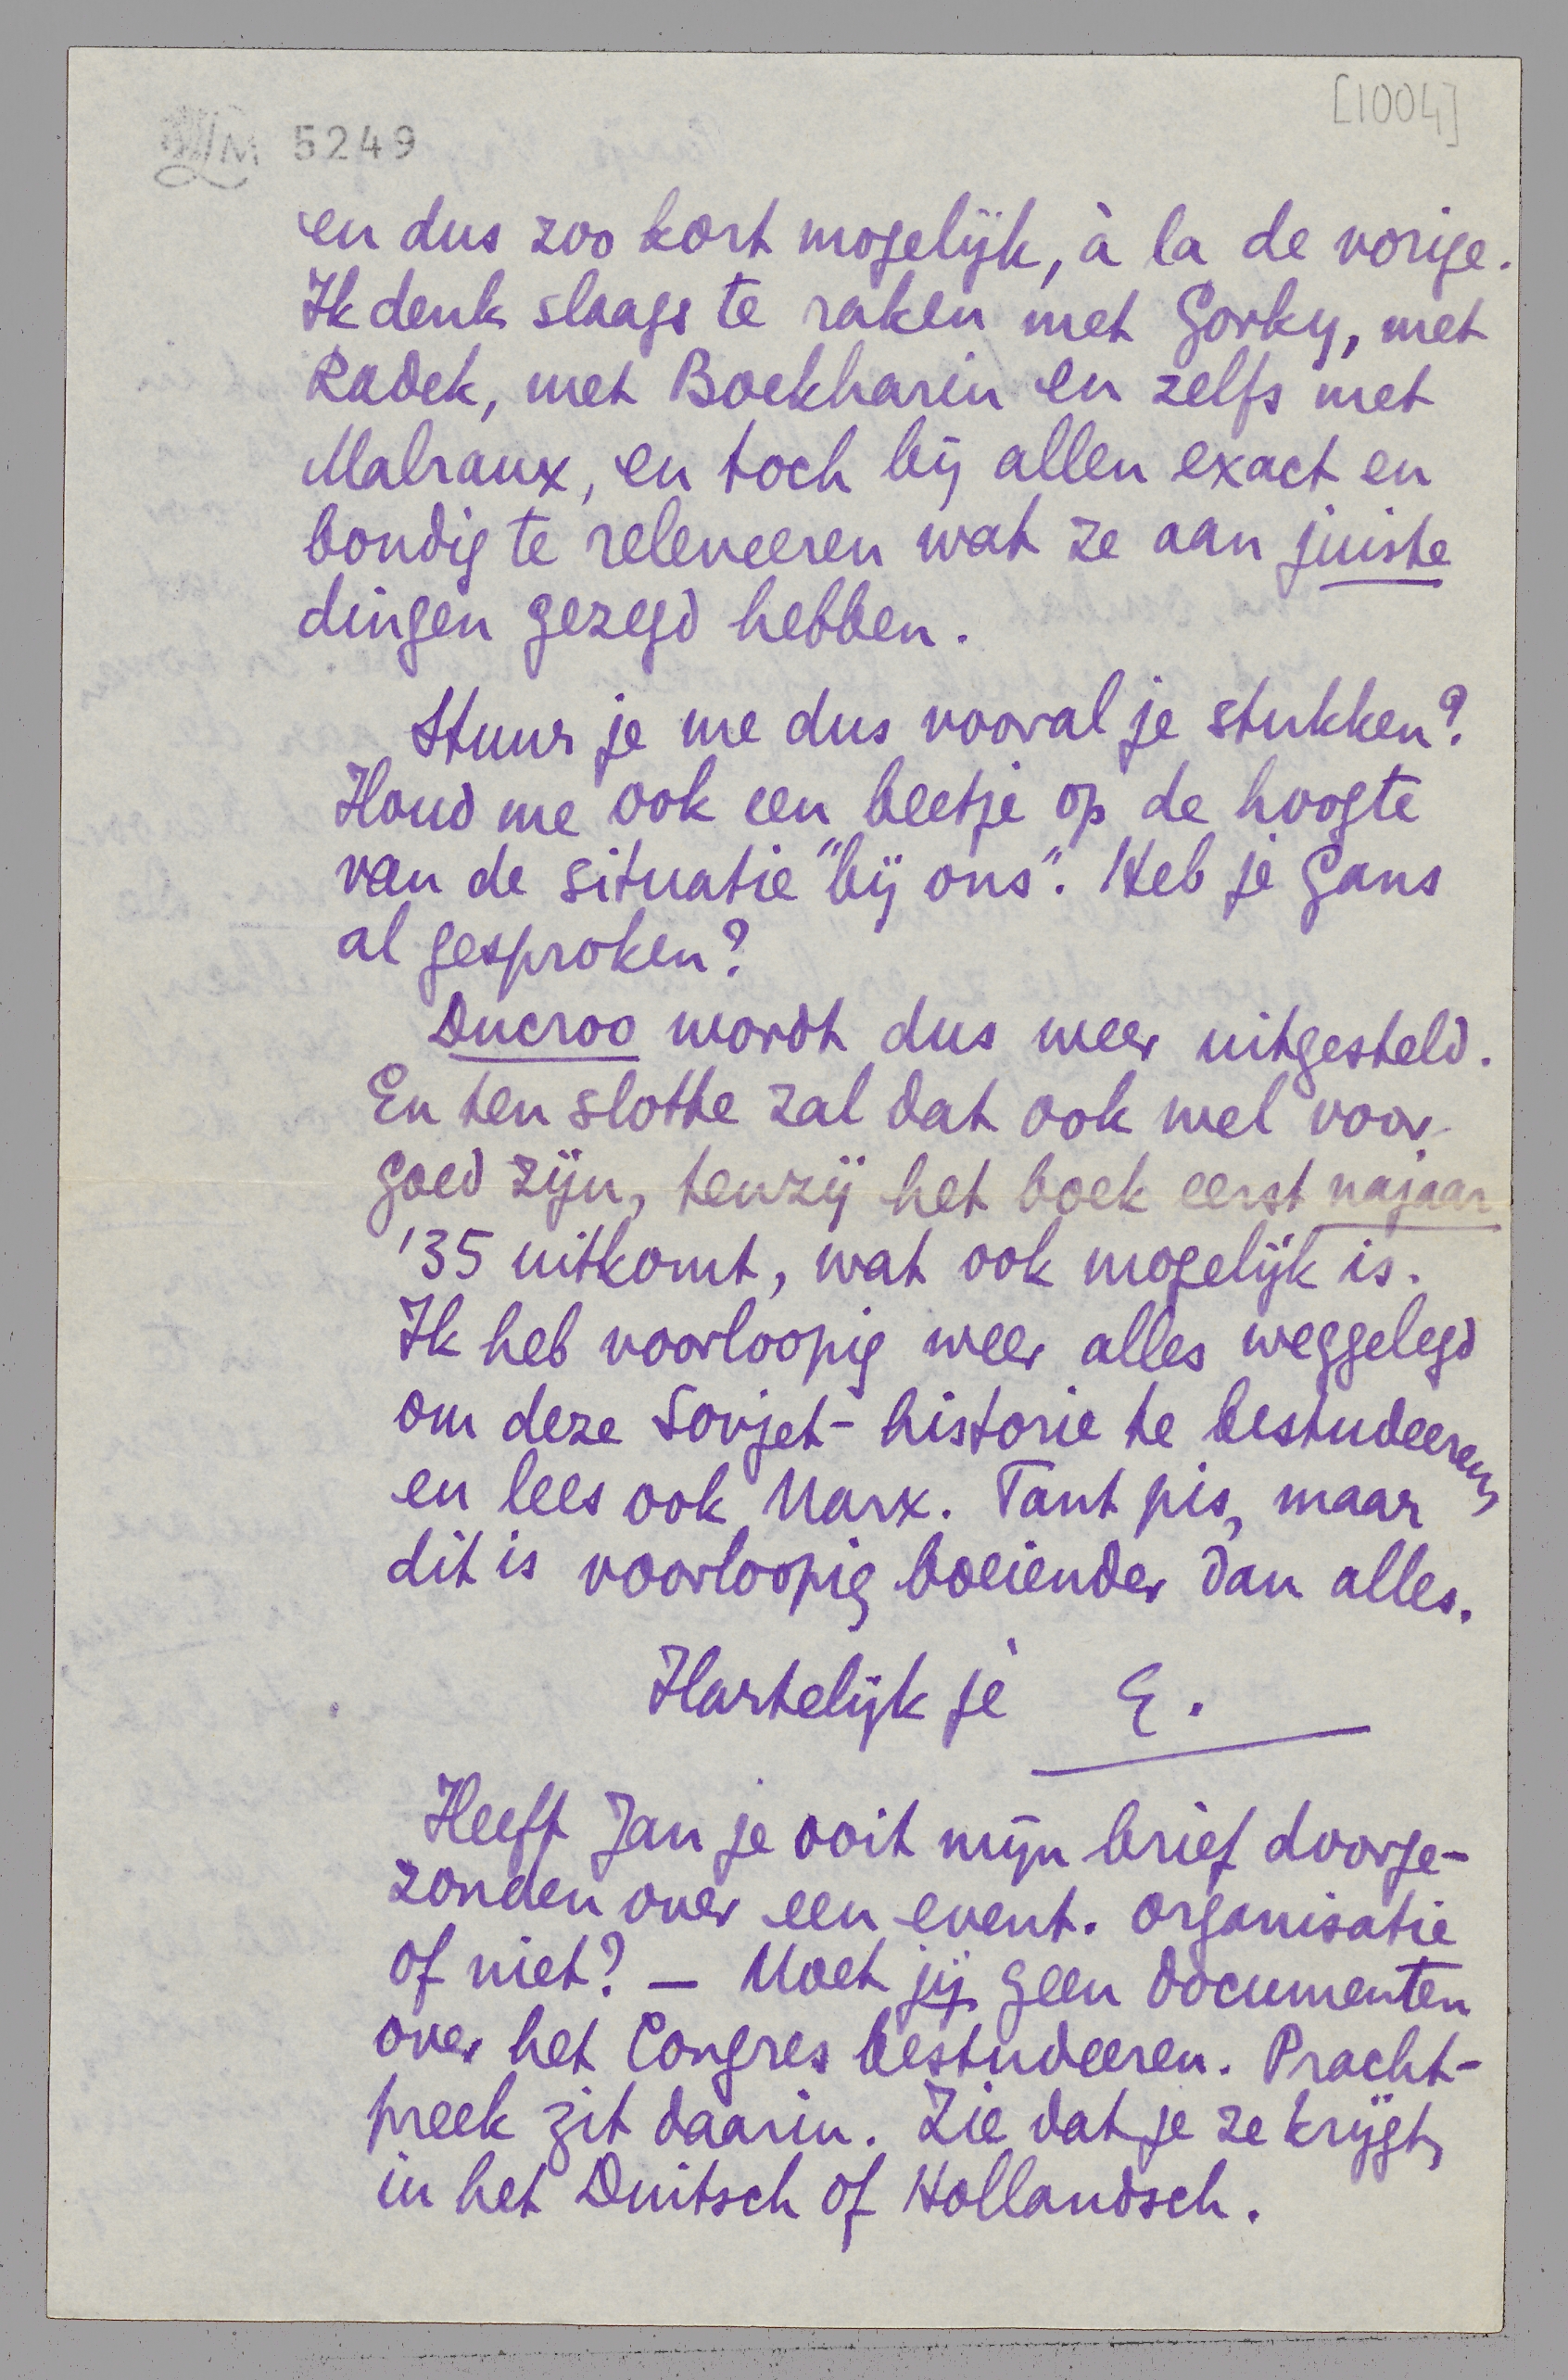 [1004]
LM 5249
en dus zoo kort mogelijk, à la de vorige.
Ik denk slaags te raken met Gorky, met
Radek, met Boekharin en zelfs met
Malraux, en toch bij allen exact en
bondig te releveeren wat ze aan juiste
dingen gezegd hebben.
Stuur je me dus vooral je stukken?
Houd me ook een beetje op de hoogte
van de situatie "bij ons". Heb je Gans
al gesproken?
Ducroo wordt dus weer uitgesteld.
En ten slotte zal dat ook wel voor
goed zijn, tenzij het boek eerst najaar
'35 uitkomt, wat ook mogelijk is.
Ik heb voorloopig weer alles weggelegd
om deze Sovjet-historie te bestudeeren,
en lees ook Marx. Tant pis, maar
dit is voorloopig boeiender dan alles.
Hartelijk je E.
Heeft Jan je ooit mijn brief doorge-
zonden over een event. organisatie
of niet? — Moet jij geen documenten
over het Congres bestudeeren. Pracht-
preek zit daarin. Zie dat je ze krijgt,
in het Duitsch of Hollandsch.